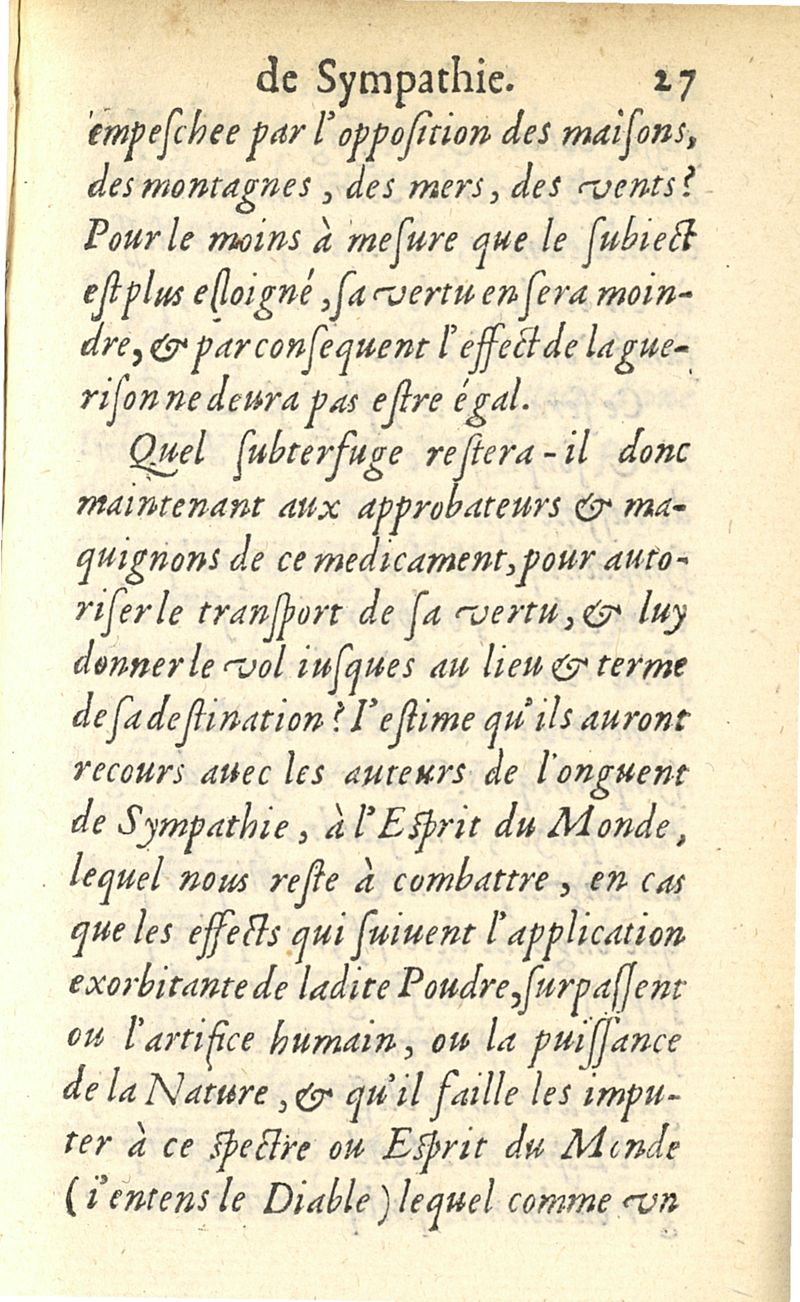 de Sympathie. 27
empeſchee par l'oppoſition des maiſons,
des montagnes, des mers, des vents?
Pour le moins à meſure que le ſubiect
eſt plus eſloigné, ſa vertu en ſera moin-
dre, & par conſequent l'effect de la gue-
riſon ne deura pas eſtre égal.
Quel ſubterfuge reſtera-il donc
maintenant aux approbateurs & ma-
quignons de ce medicament, pour auto-
riſer le tranſport de ſa vertu, & luy
donner le vol iuſques au lieu & terme
de ſa deſtination? I'eſtime qu'ils auront
recours auec les auteurs de l'onguent
de Sympathie, à l'Eſprit du Monde,
lequel nous reſte à combattre, en cas
que les effects qui ſuiuent l'application
exorbitante de ladite Poudre, ſurpaſſent
ou l'artifice humain, ou la puiſſance
de la Nature, & qu'il faille les impu-
ter à ce ſpectre ou Eſprit du Monde
(i'entens le Diable) lequel comme vn